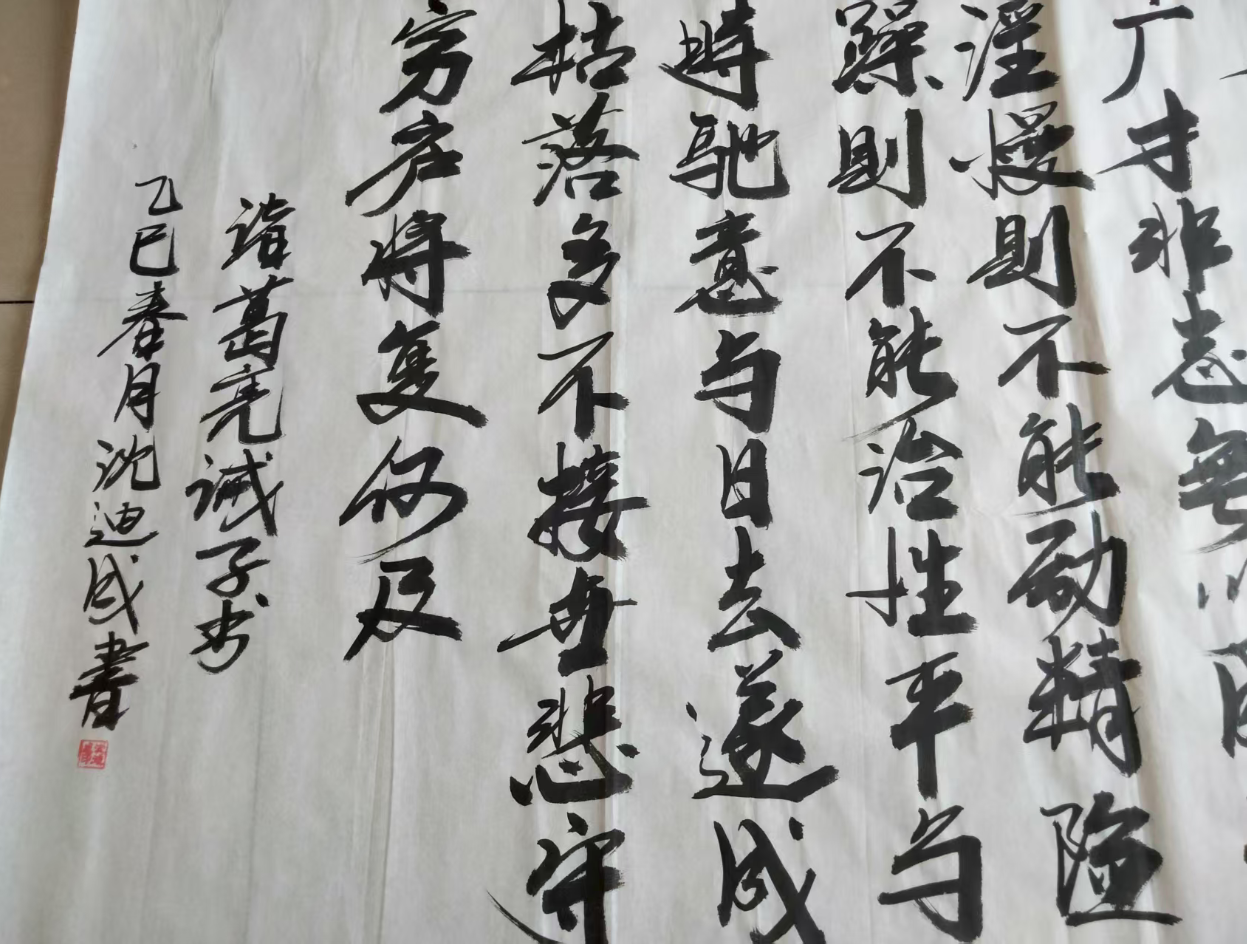 广才非志無
淫慢則不能励精险
躁則不能治性年与
時驰意与日去遂成
枯落多不接世悲守
穷庐将复何及
诸葛亮诫子书
乙巳春月沈迪成書